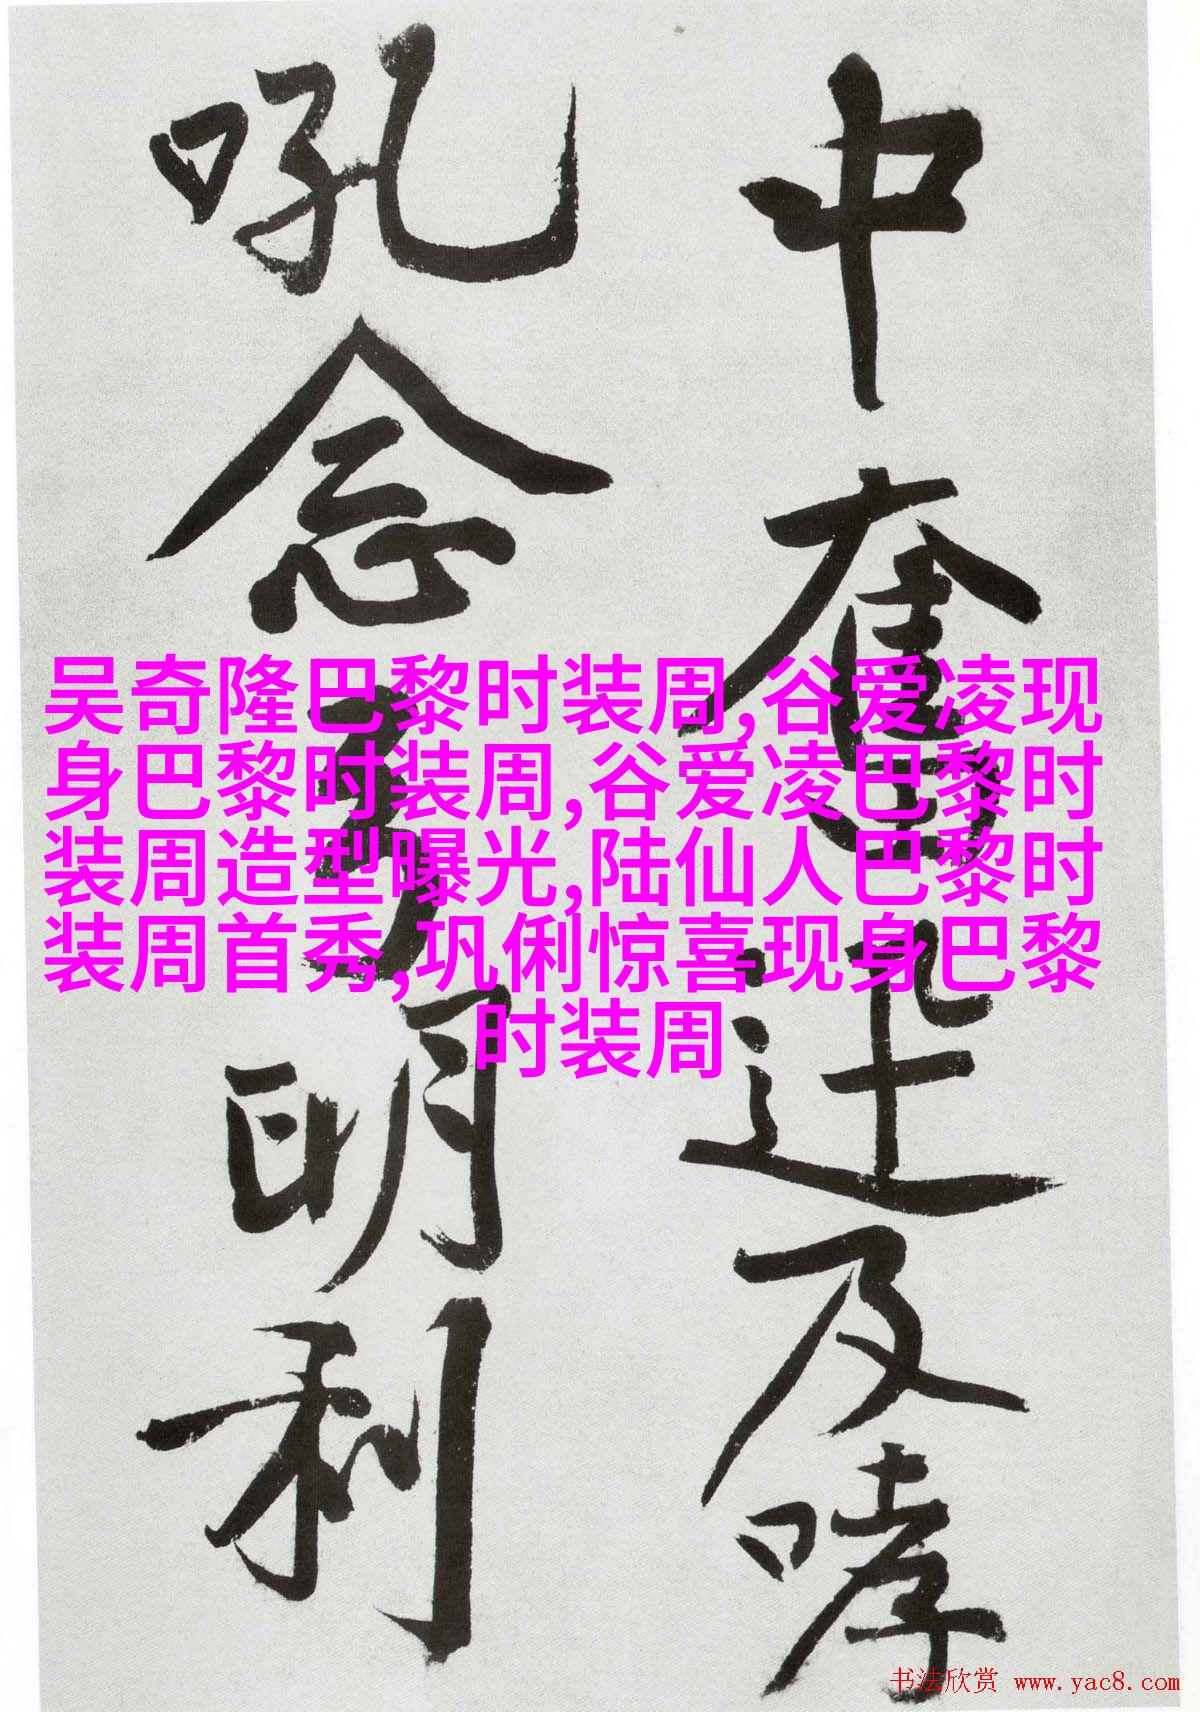 中奮迅及哮
吼念明利
吴奇隆巴黎时装周,谷爱凌现
身巴黎时装周,谷爱凌巴黎时
装周造型曝光,陆仙人巴黎时
装周首秀,巩俐惊喜现身巴黎
时装周
书法欣赏 www.yac8.com